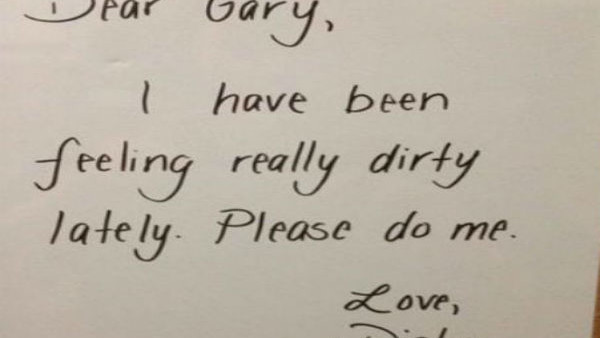 Dear Gary,
I have been
feeling really dirty
lately. Please do me.
Love,